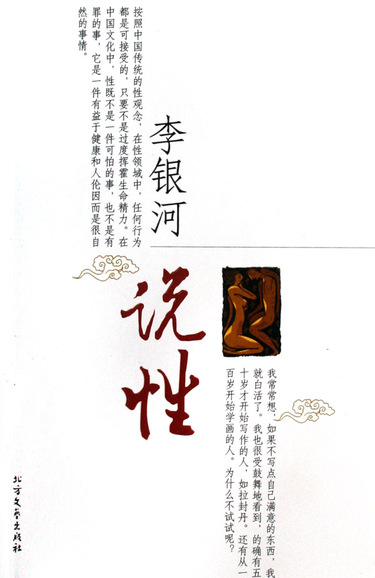 按照中国传统的性观念，在性领域中，任何行为
都是可接受的，只要不是过度挥霍生命精力。在
中国文化中，性既不是一件可怕的事，也不是有
罪的事，它是一件有益于健康和人伦因而是很自
然的事情。
李银河
说性
我常常想，如果不写点自己满意的东西，我
就白活了。我也很受鼓舞地看到，的确有五
十岁才开始写作的人，如拉封丹。还有从一
百岁开始学画的人。为什么不试试呢？
北方文艺出版社